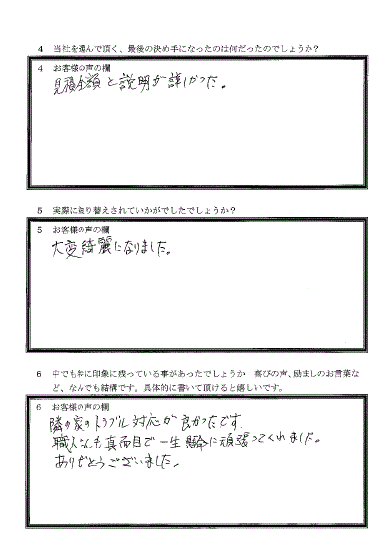 4 当社を選んで頂く、最後の決め手になったのは何だったのでしょうか？
4 お客様の声の欄
見積金額と説明が詳しかった。
5 実際に貼り替えされていかがでしたでしょうか？
5 お客様の声の欄
大変綺麗になりました。
6 中でも特に印象に残っている事があったでしょうか 喜びの声、励ましのお言葉な
ど、なんでも結構です。具体的に書いて頂けると嬉しいです。
6 お客様の声の欄
隣の家のトラブル対応が良かったです。
職人さんも真面目で一生懸命に頑張ってくれました。
ありがとうございました。